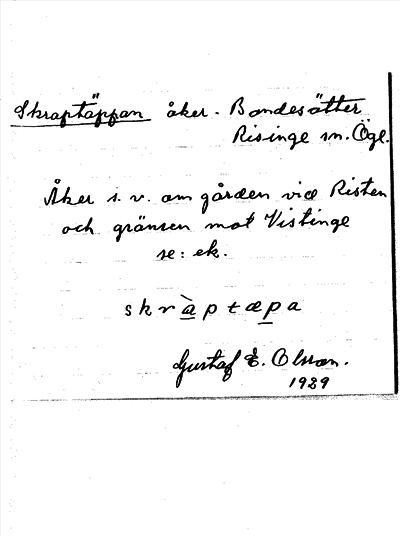 Skraptäppan åker. Bondesätter
Risinge sn. Ögl.
Åker s.v. om gården vid Risten
och gränsen mot Vistinge
se: ek.
skràptæpa
Gustaf E. Olsson.
1929